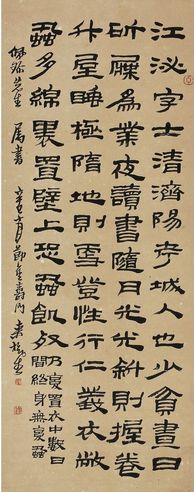 江泌字士清濟陽考城人也少貧晝日
斫屧為業夜讀書隨月光光斜則握卷
升屋睡極墮地則更登性行仁義衣
蝨多綿裹置壁上恐蝨飢死乃復置衣中數日
間終身無復蝨
先生
屬書